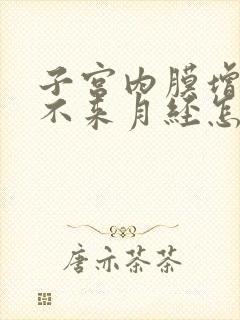 子宫内膜增
不来月经怎
唐亦茶茶